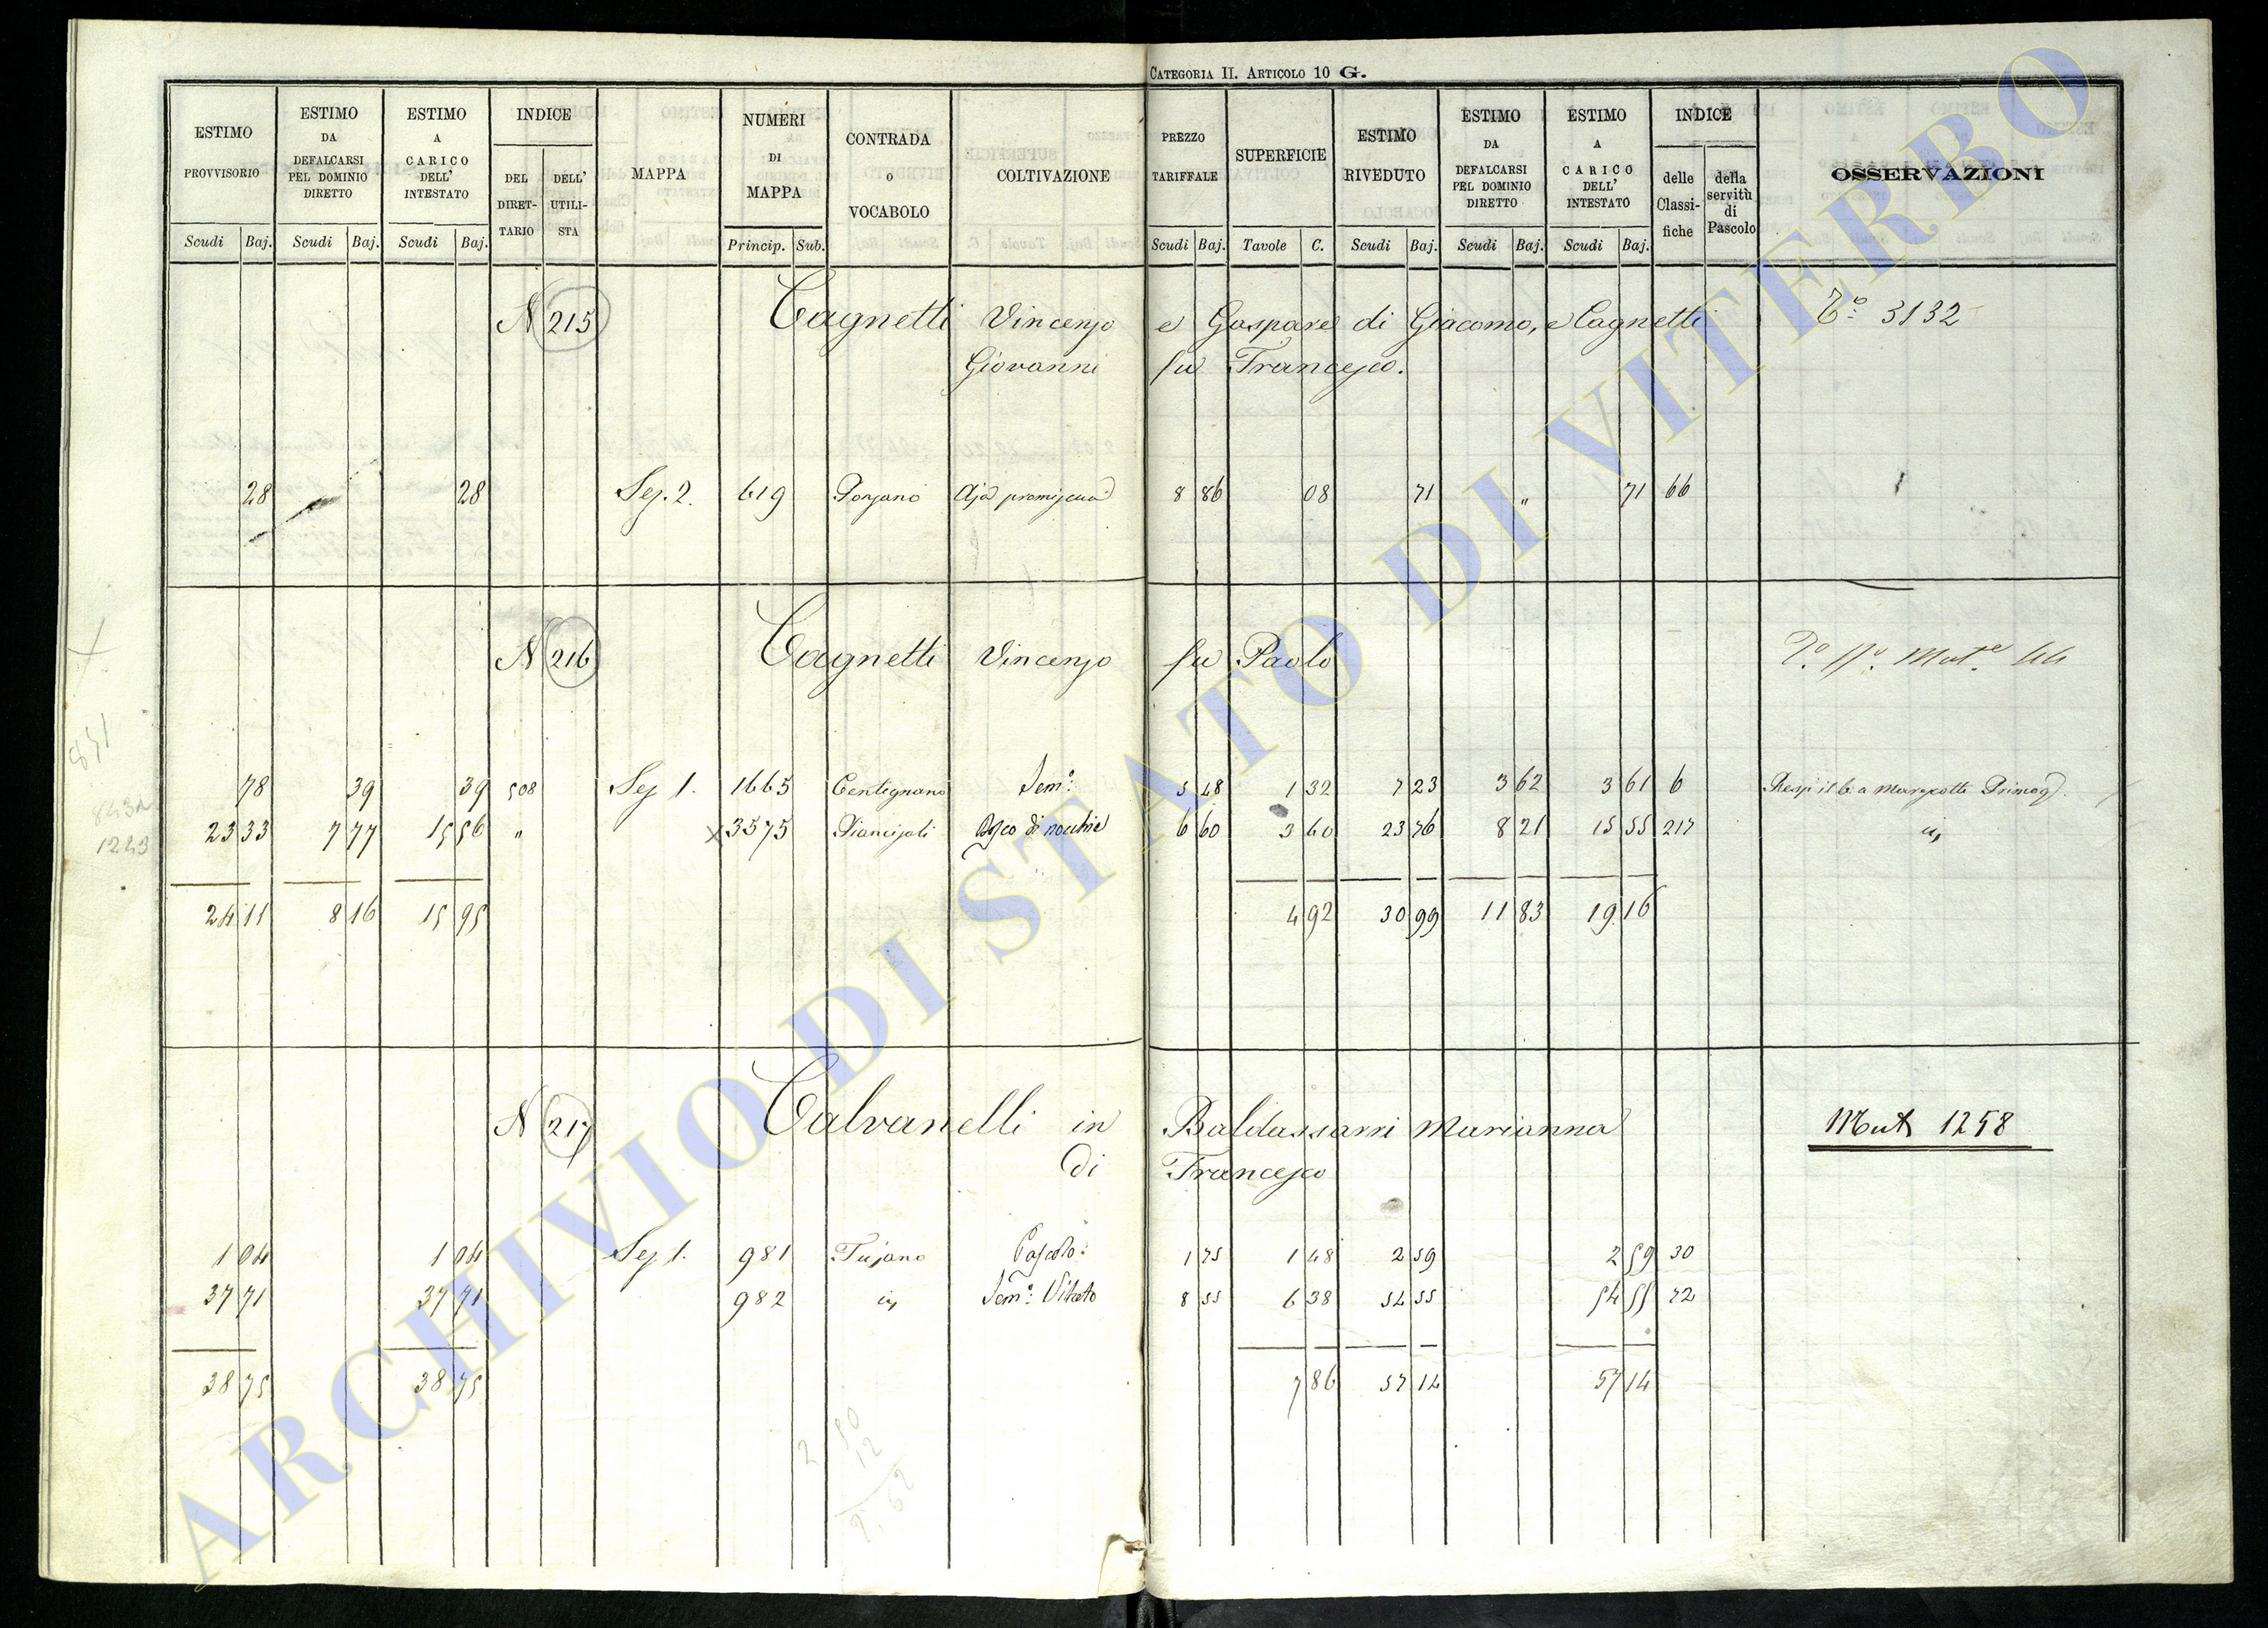 CATEGORIA II. ARTICOLO 10 G.
ESTIMO PROVVISORIO Scudi Baj.
ESTIMO DA DEFALCARSI PEL DOMINIO DIRETTO Scudi Baj.
ESTIMO A CARICO DELL' INTESTATO Scudi Baj.
INDICE DEL DIRET-TARIO DELL' UTILI-STA
MAPPA
NUMERI DI MAPPA Princip. Sub.
CONTRADA o VOCABOLO
COLTIVAZIONE
PREZZO TARIFFALE Scudi Baj.
SUPERFICIE Tavole C.
ESTIMO RIVEDUTO Scudi Baj.
ESTIMO DA DEFALCARSI PEL DOMINIO DIRETTO Scudi Baj.
ESTIMO A CARICO DELL' INTESTATO Scudi Baj.
INDICE delle Classi-fiche della servitù di Pascolo
OSSERVAZIONI
N 215 Cagnetti Vincenzo e Gaspare di Giacomo, e Cagnetti 3132
Giovanni fu Francesco.
28 28 Sez. 2. 619 Ponzano Aja promiscua 8 86 08 71 " 71 66
N 216 Cagnetti Vincenzo fu Paolo
78 39 39 508 Sez 1. 1665 Centignano Sem.o 5 48 1 32 7 23 3 62 3 61 6
23 33 7 77 15 56 " 3575 Piancisoli Bosco di nocchie 6 60 3 60 23 76 8 21 15 55 217
24 11 8 16 15 95 4 92 30 99 11 83 19 16
N 217 Calvanelli in Baldassarri Marianna Mut 1258
di Francesco
1 04 1 04 Sez 1. 981 Pascolo 1 75 1 48 2 59 2 59 30
37 71 37 71 982 Sem.o Vitato 8 55 6 38 54 55 54 55 72
38 75 38 75 7 86 57 14 57 14
841
1243
ARCHIVIO DI STATO DI VITERBO